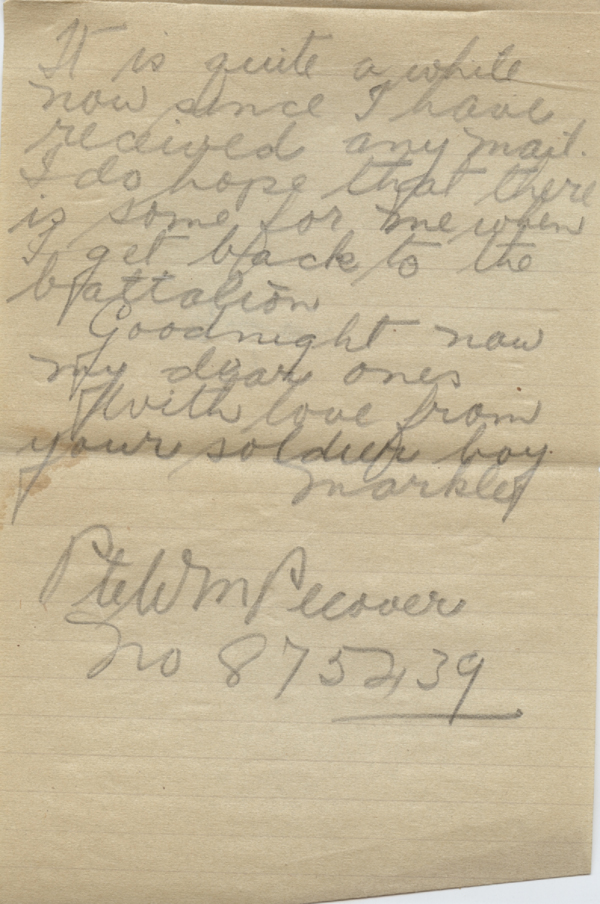 It is quite a while
now since I have
recieved any mail.
I do hope that there
is some for me when
I get back to the
battalion
Goodnight now
my dear ones
With love from
your soldier boy
Markley
Pte W M Pecover
No 875439